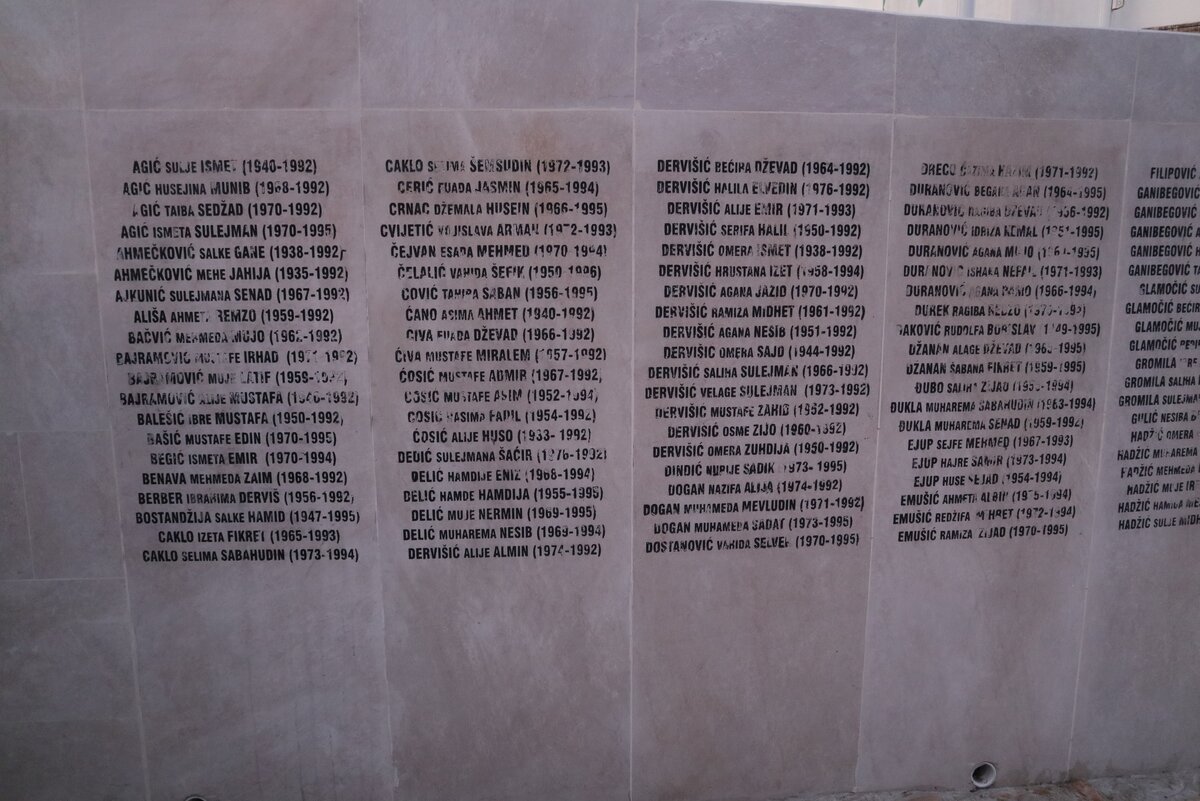 AGIĆ SULJE ISMET (1940-1992)
AGIĆ HUSEJINA MUNIB (1968-1992)
AGIĆ TAIBA SEDŽAD (1970-1992)
AGIĆ ISMETA SULEJMAN (1970-1995)
AHMEČKOVIĆ SALKE GANE (1938-1992)
AHMEČKOVIĆ MEHE JAHIJA (1935-1992)
AJKUNIĆ SULEJMANA SENAD (1967-1992)
ALIŠA AHMETA REMZO (1959-1992)
BAČVIĆ MEHMEDA MUJO (1962-1992)
BAJRAMOVIĆ MUSTAFE IRHAD
BAJRAMOVIĆ MUJE LATIF
BAJRAMOVIĆ ALIJE MUSTAFA (1946-1992)
BALEŠIĆ IBRE MUSTAFA (1950-1992)
BAŠIĆ MUSTAFE EDIN (1970-1995)
BEGIĆ ISMETA EMIR (1970-1994)
BENAVA MEHMEDA ZAIM (1968-1992)
BERBER IBRAHIMA DERVIŠ (1956-1992)
BOSTANDŽIJA SALKE HAMID (1947-1995)
CAKLO IZETA FIKRET (1965-1993)
CAKLO SELIMA SABAHUDIN (1973-1994)
CAKLO SELIMA ŠEMSUDIN (1972-1993)
CERIĆ FUADA JASMIN (1965-1994)
CRNAC DŽEMALA HUSEIN (1966-1995)
CVIJETIĆ VOJISLAVA ARMAN (1972-1993)
ČEJVAN ESADA MEHMED (1970-1994)
ČELALIĆ VAHIDA ŠEFIK
ČOVIĆ TAHIRA ŠABAN (1956-1995)
ČANO ASIMA AHMET (1940-1992)
ĆIVA FUADA DŽEVAD (1966-1992)
ĆIVA MUSTAFE MIRALEM (1957-1992)
ĆOSIĆ MUSTAFE ADMIR (1967-1992)
ĆOSIĆ MUSTAFE ASIM (1952-1994)
ĆOSIĆ HASIMA FADIL (1954-1992)
ĆOSIĆ ALIJE HUSO (1933- 1992)
DEDIĆ SULEJMANA ŠAĆIR
DELIĆ HAMDIJE ENIZ (1968-1994)
DELIĆ HAMDE HAMDIJA (1955-1995)
DELIĆ MUJE NERMIN (1969-1995)
DELIĆ MUHAREMA NESIB (1969-1994)
DERVIŠIĆ ALIJE ALMIN (1974-1992)
DERVIŠIĆ BEĆIRA DŽEVAD (1964-1992)
DERVIŠIĆ HALILA ELVEDIN (1976-1992)
DERVIŠIĆ ALIJE EMIR (1971-1993)
DERVIŠIĆ ŠERIFA HALIL (1950-1992)
DERVIŠIĆ OMERA ISMET (1938-1992)
DERVIŠIĆ HRUSTANA IZET (1958-1994)
DERVIŠIĆ AGANA JAZID (1970-1992)
DERVIŠIĆ RAMIZA MIDHET (1961-1992)
DERVIŠIĆ AGANA NESIB (1951-1992)
DERVIŠIĆ OMERA SAJO (1944-1992)
DERVIŠIĆ SALIHA SULEJMAN (1966-1992)
DERVIŠIĆ VELAGE SULEJMAN (1973-1992)
DERVIŠIĆ MUSTAFE ZAHID (1952-1992)
DERVIŠIĆ OSME ZIJO (1960-1992)
DERVIŠIĆ OMERA ZUHDIJA (1950-1992)
DINDIĆ NURIJE SADIK (1973- 1995)
DOGAN NAZIFA ALIJA (1974-1992)
DOGAN MUHAMEDA MEVLUDIN (1971-1992)
DOGAN MUHAMEDA SADAT (1973-1995)
DOSTANOVIĆ VAHIDA SELVER (1970-1995)
DRECO NAZIM (1971-1992)
DURANOVIĆ BEGANA AGAN (1964-1995)
DURANOVIĆ RAGIBA DŽEVAD (1956-1992)
DURANOVIĆ IDRIZA KEMAL (1951-1995)
DURANOVIĆ AGANA MUJO
DURANOVIĆ ISHAKA NEFAIL (1971-1993)
DURANOVIĆ AGANA RAMO (1966-1994)
DUREK RAGIBA REDŽO
ĐAKOVIĆ RUDOLFA BORISLAV (1949-1995)
DŽANAN ALAGE DŽEVAD
DŽANAN ŠABANA FIKRET (1959-1995)
ĐUBO SALIHA ZIJAD
ĐUKLA MUHAREMA SABAHUDIN (1963-1994)
ĐUKLA MUHAREMA SENAD (1959-1992)
EJUP SEJFE MEHMED (1967-1993)
EJUP HAJRE SAMIR (1973-1994)
EJUP HUSE SEJAD (1954-1994)
EMUŠIĆ AHMETA
EMUŠIĆ REDŽIFA (1972-1994)
EMUŠIĆ RAMIZA ZIJAD (1970-1995)
FILIPOVIĆ
GANIBEGOVIĆ
GANIBEGOVIĆ
GANIBEGOVIĆ
GANIBEGOVIĆ
GANIBEGOVIĆ
GLAMOČIĆ
GLAMOČIĆ
GLAMOČIĆ
GLAMOČIĆ
GROMILA
GROMILA SALIHA
GROMILA SULEJMAN
GULIĆ NESIBA
HADŽIĆ OMERA
HADŽIĆ MUHAREMA
HADŽIĆ MEHMEDA
HADŽIĆ MUJE
HADŽIĆ HAMIDA
HADŽIĆ SULJE